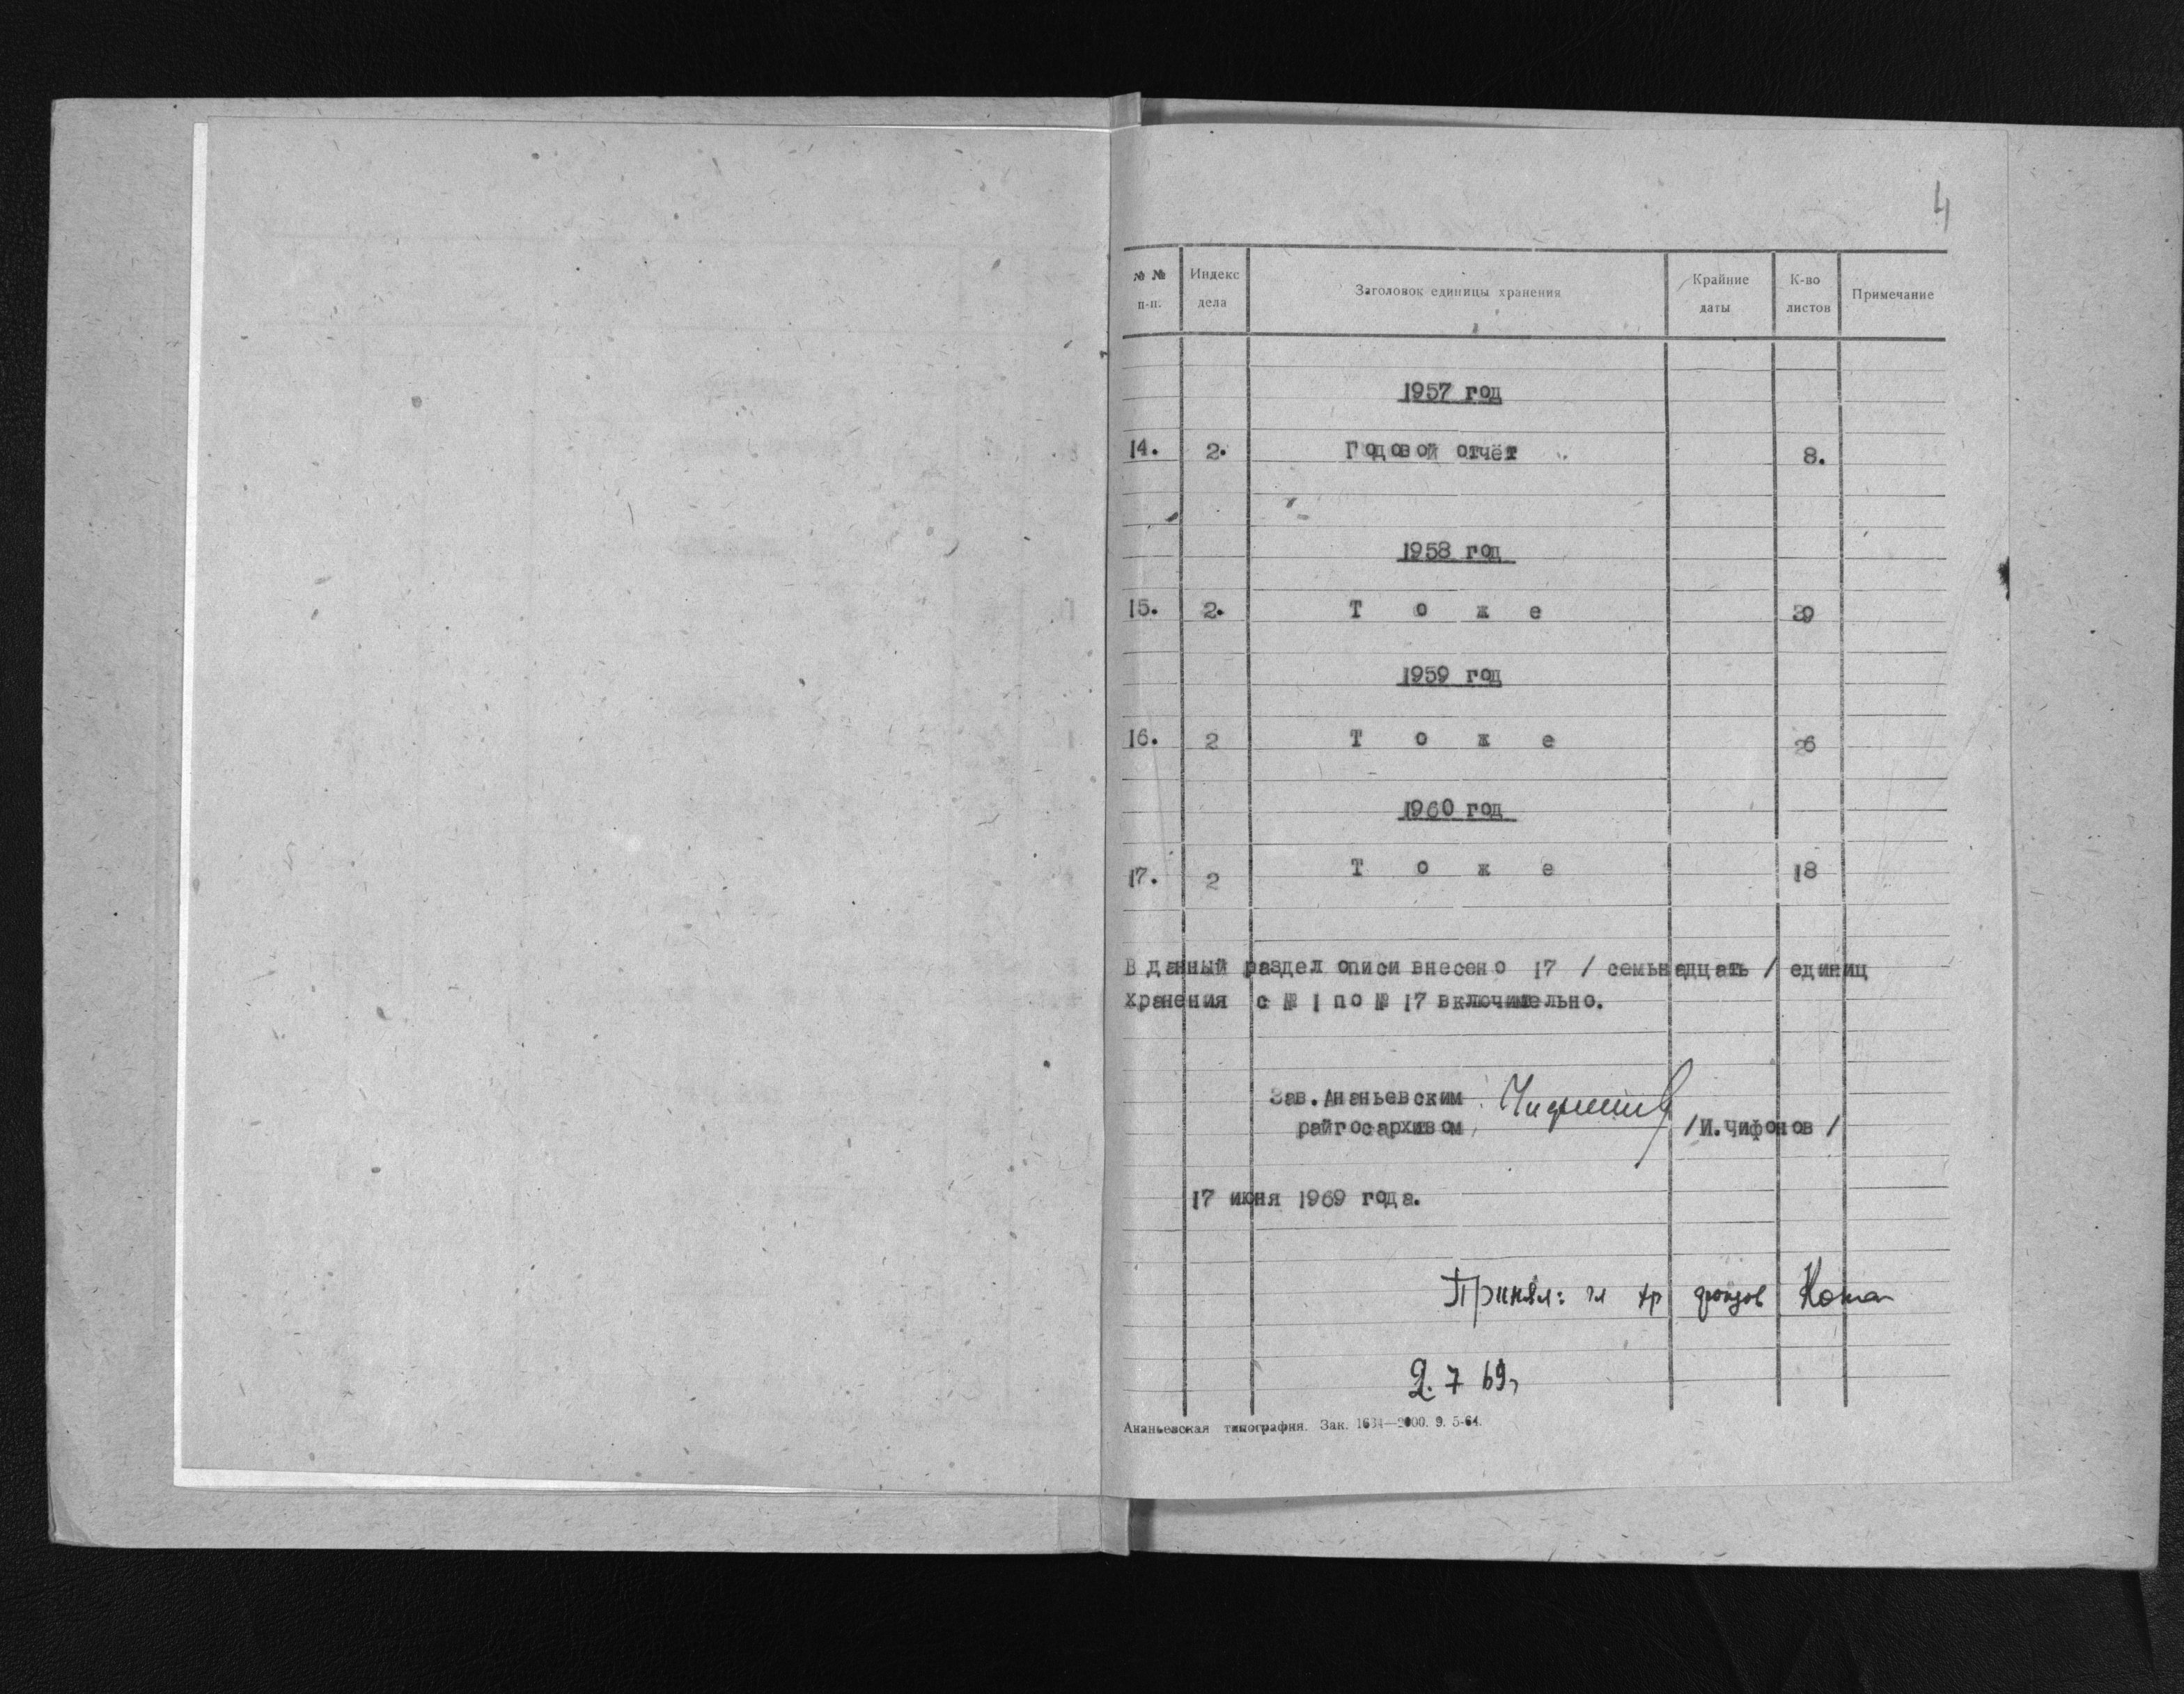 4
№ № п-п. Индекс дела Заголовок единицы хранения Крайние даты К-во листов Примечание
1957 год
14. 2. Годовой отчёт 8.
1958 год
15. 2. Т о ж е 39
1959 год
16. 2 Т о ж е 26
1960 год
17. 2 Т о ж е 18
В данный раздел описи внесено 17 / семьнадцать / единиц
хранения с № 1 по № 17 включительно.
Зав. Ананьевским
райгосархивом /И.Чифонов /
17 июня 1969 года.
Принял: гл хр фондов
2. 7 69г
Ананьевская типография. Зак. 1634—2000. 9. 5-64.